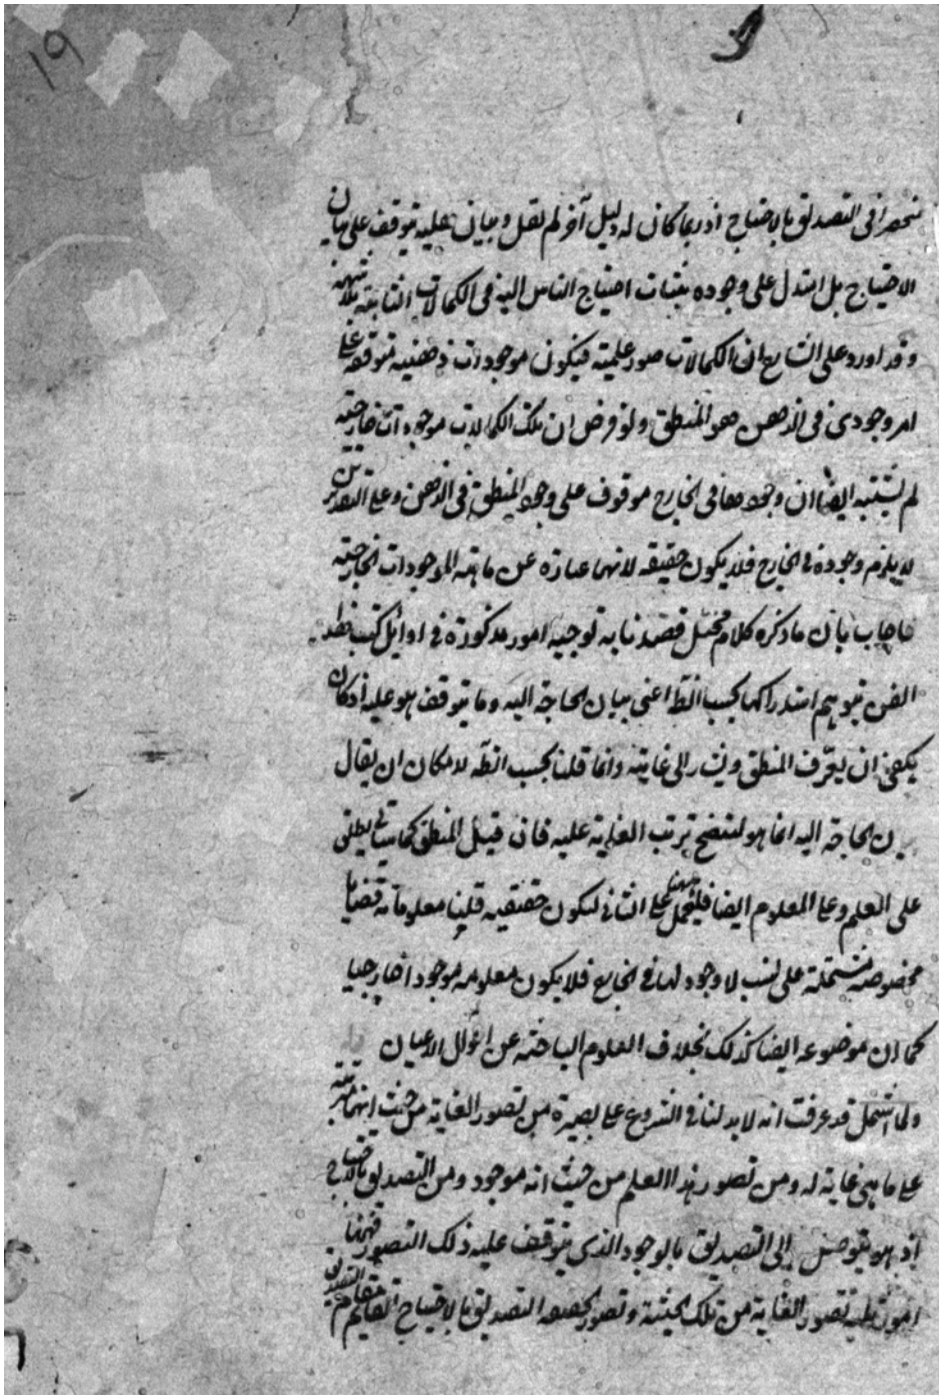 ١٩
منحصرا في التصديق بالاحتياج اذ ربما كان له دليل آخر لم نقل وبيان عليه يتوقف على بيان
الاحتياج بل استدل على وجوده بثبات احتياج الناس اليه في الكمالات الثابتة
وقد اورد على الشارح ان الكمالات صور علمية فيكون موجودات ذهنية متوقفة على
امر وجودى في الذهن هو المنطق ولو فرض ان تلك الكمالات موجودات خارجية
لم يشتبه ايضا ان وجودها في الخارج موقوف على وجود المنطق في الذهن وعلى التقديرين
لا يلزم وجوده في الخارج فلا يكون حقيقة لانها عبارة عن ماهية الموجودات الخارجية
فاجاب بان ما ذكره كلام مختل قصدنا به توجيه امور مذكورة في اوائل كتب
الفن يتوهم استدراكها بحسب اعنى بيان الحاجة اليه وما يتوقف هو عليه اذ كان
يكفى ان يعرف المنطق ويشار الى غايته وانما قلنا بحسب لامكان ان يقال
الحاجة اليه انما هو ليتضح ترتب الغاية عليه فان قيل المنطق كما سياتى يطلق
على العلم وعلى المعلوم ايضا على الثانى ليكون حقيقيه قلنا معلوماته قضايا
مخصوصة مشتملة على نسب لا وجود لها في الخارج فلا يكون معلومه موجودا خارجيا
كما ان موضوعه ايضا كذلك بخلاف العلوم الباحثة عن احوال الاعيان
قد عرفت انه لا بد لنا في الشروع على بصيرة من تصور الغاية من حيث انها مترتبة
على ما هى غاية له ومن تصور هذا العلم من حيث انه موجود ومن التصديق بالاحتياج
اذ هو يتوصل الى التصديق بالوجود الذى يتوقف عليه ذلك التصور فههنا
امور ثلثة تصور الغاية من تلك الحيثية وتصور التصديق بالاحتياج